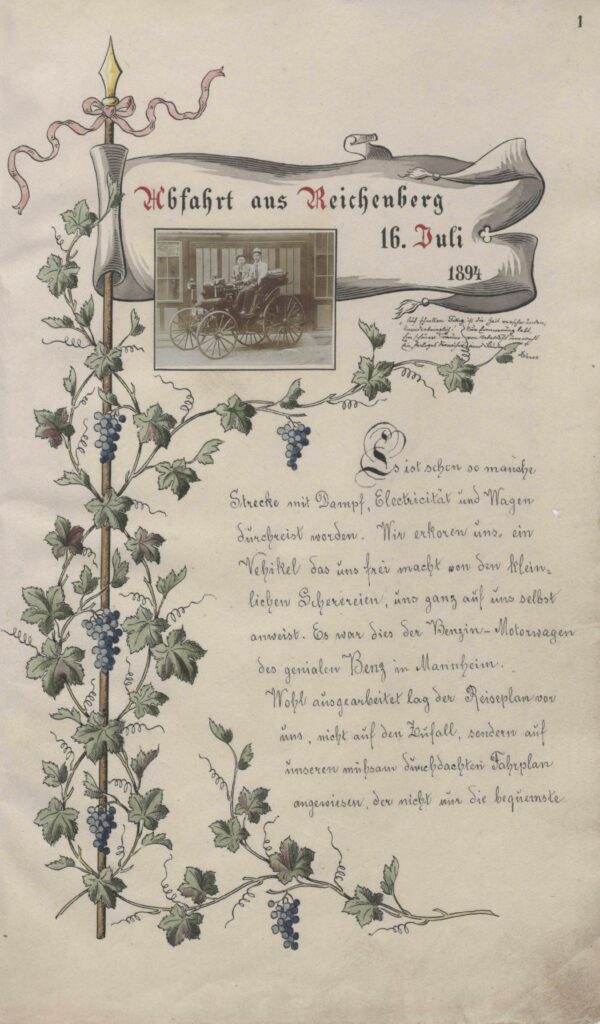 1
Abfahrt aus Reichenberg
16. Juli
1894
Auf schnellem Fittig ist die Zeit
Die Erinnerung lebt
Es ist schon so manche
Strecke mit Dampf, Electricität und Wagen
durchreist worden. Wir erkoren uns, ein
Vehikel das uns frei macht von den klein-
lichen Scherereien, uns ganz auf uns selbst
anweist. Es war dies der Benzin-Motorwagen
des genialen Benz in Mannheim.
Wohl ausgearbeitet lag der Reiseplan vor
uns, nicht auf den Zufall, sondern auf
unseren mühsam durchdachten Fahrplan
angewiesen, der nicht nur die bequemste